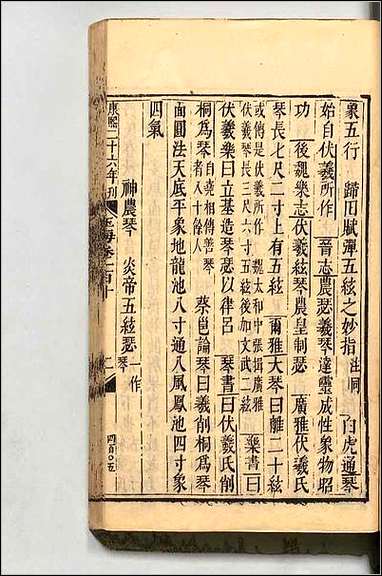 象五行　歸田賦彈五絃之妙指注同　白虎通琴
始自伏羲所作　晉志農瑟羲琴達靈成性象物昭
功　後魏樂志伏羲絃琴農皇制瑟　廣雅伏羲氏
琴長七尺二寸上有五絃　爾雅大琴曰離二十絃
或傳是伏羲所作　魏太和中張揖廣雅伏羲琴長三尺六寸五絃後加文武二絃　樂書曰
伏羲樂曰立基造琴瑟以律呂　琴書曰伏羲氏削
桐爲琴自堯相傳善琴者八十餘人　蔡邕論琴曰羲削桐爲琴
面圓法天底平象地龍池八寸通八風鳳池四寸象
四氣
神農琴　炎帝五絃瑟一作琴
康熙二十六年刊
玉海卷一百十
二
四百〇五